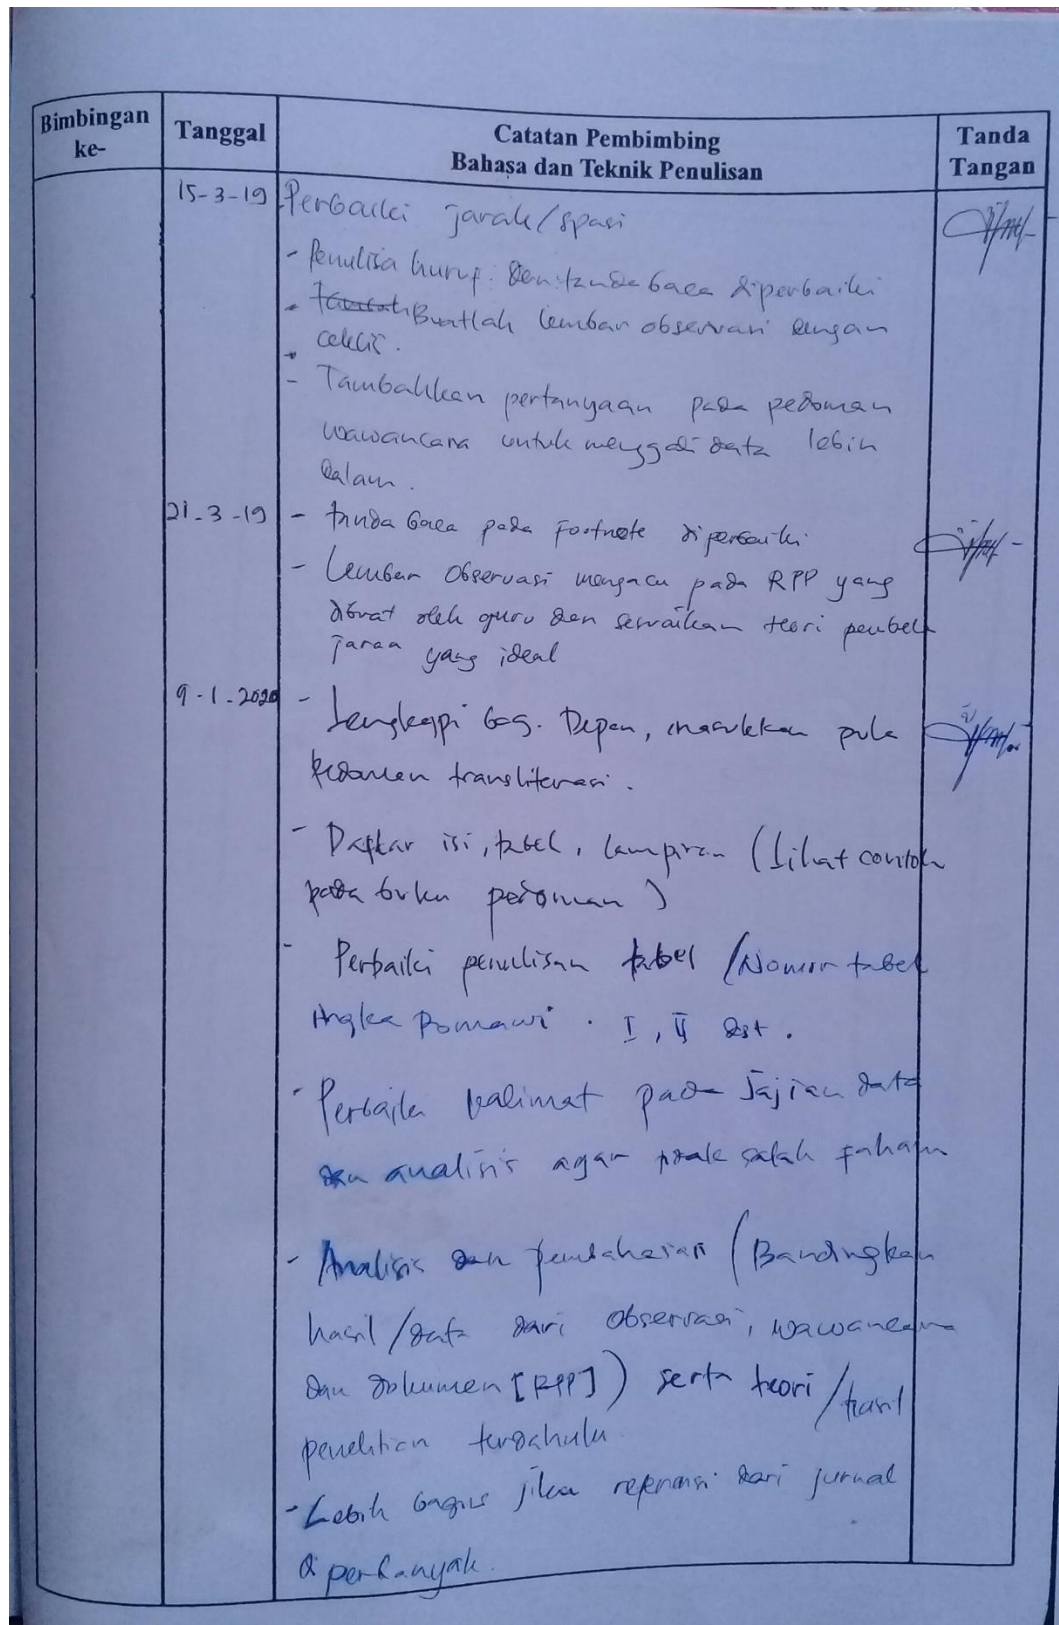 Bimbingan ke-
Tanggal
Catatan Pembimbing
Bahasa dan Teknik Penulisan
Tanda Tangan
15-3-19 Perbaiki jarak/spasi
- Penulisa huruf. dan tanda baca diperbaiki
- Buatlah lembar observasi dengan
ceklis.
- Tambahkan pertanyaan pada pedoman
wawancara untuk menggali data lebih
dalam.
21-3-19 - tanda baca pada Footnote diperbaiki
- Lembar Observasi mengacu pada RPP yang
dibuat oleh guru dan sesuaikan teori pembela
jaran yang ideal
9-1-2020 - Lengkapi bag. Depan, masukkan pula
pedoman transliterasi.
- Daftar isi, tabel, lampiran (Lihat contoh
pada buku pedoman)
- Perbaiki penulisan tabel (Nomor tabel
Angka Romawi. I, II dst.
- Perbaiki kalimat pada Sajian data
dan analisis agar tidak salah faham
- Analisis dan pembahasan (Bandingkan
hasil/data dari observasi, wawancara
dan dokumen [RPP]) serta teori/hasil
penelitian terdahulu
- Lebih bagus jika referensi dari jurnal
diperbanyak.